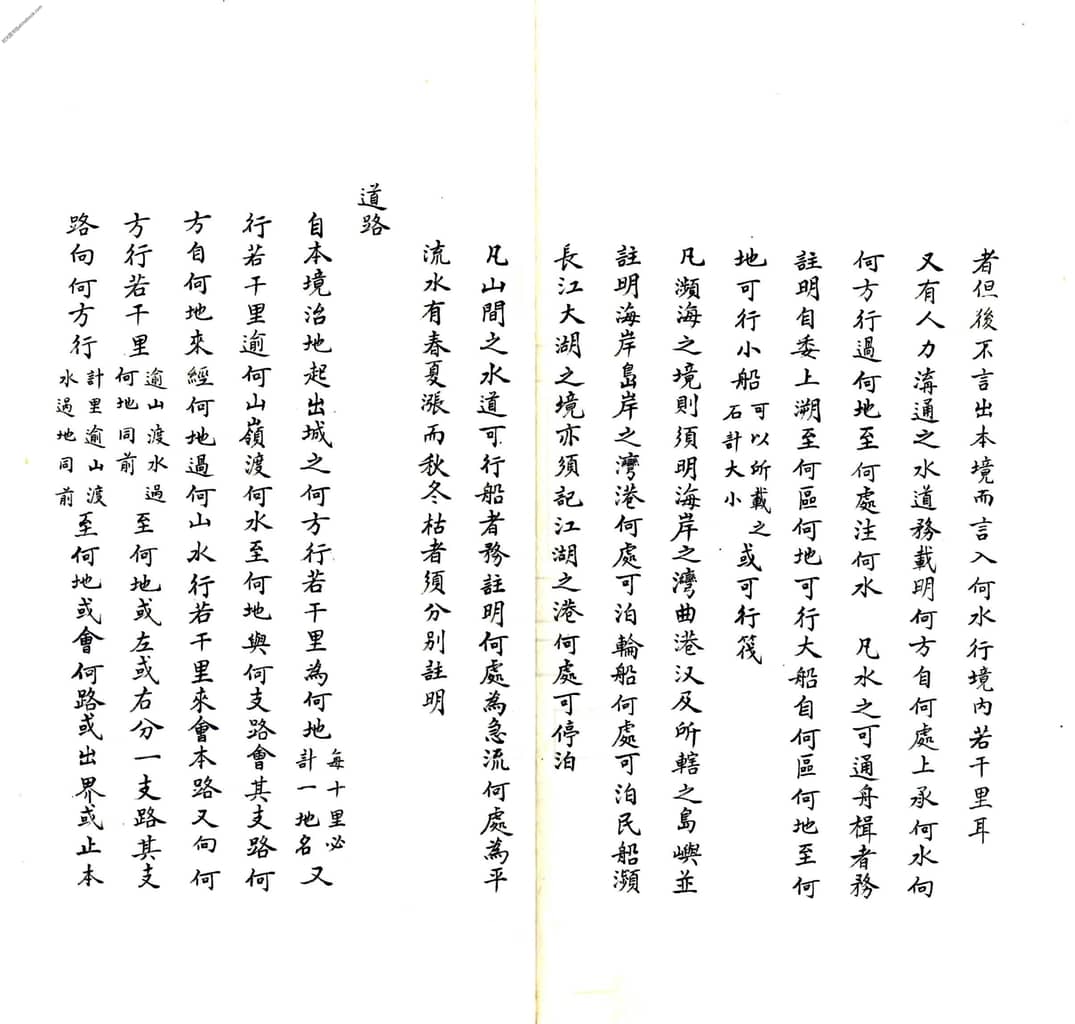 者但後不言出本境而言入何水行境內若干里耳
又有人力溝通之水道務載明何方自何處上承何水向
何方行過何地至何處注何水　凡水之可通舟楫者務
註明自委上溯至何區何地可行大船自何區何地至何
地可行小船可以所載之石計大小或可行筏
凡瀕海之境則須明海岸之灣曲港汊及所轄之島嶼並
註明海岸島岸之灣港何處可泊輪船何處可泊民船瀕
長江大湖之境亦須記江湖之港何處可停泊
凡山間之水道可行船者務註明何處為急流何處為平
流水有春夏漲而秋冬枯者須分別註明
道路
自本境治地起出城之何方行若干里為何地每十里必計一地名又
行若干里逾何山嶺渡何水至何地與何支路會其支路何
方自何地來經何地過何山水行若干里來會本路又向何
方行若干里逾山渡水過何地同前至何地或左或右分一支路其支
路向何方行計里逾山渡水過地同前至何地或會何路或出界或止本